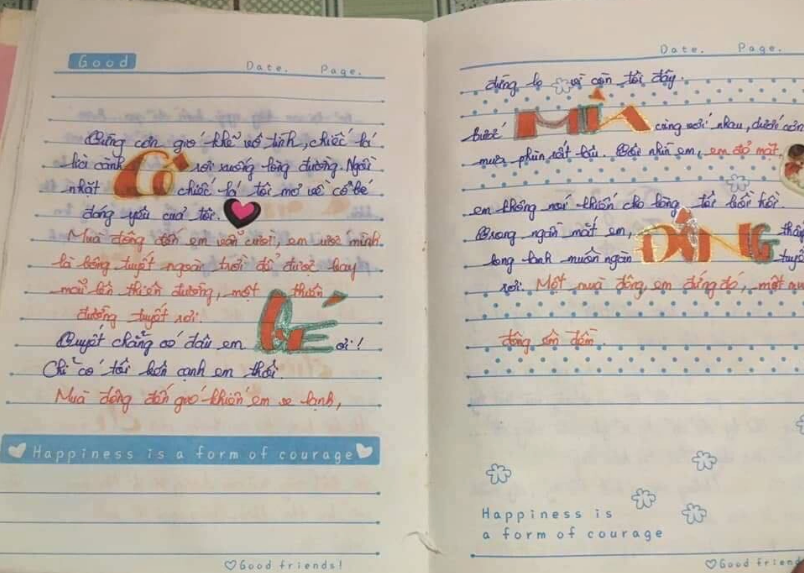 Good
Date. Page.
Từng cơn gió khẽ vô tình, chiếc lá
lìa cành rơi xuống lòng đường. Ngồi
nhặt CÓ chiếc lá tôi mơ về cô bé
đáng yêu của tôi.
Mùa đông đến em vẫn cười, em ước mình
là bông tuyết ngoài trời để được bay
mãi lên thiên đường, một thiên
đường tuyết rơi.
Tuyết chẳng có đâu em BÉ ơi!
Chỉ có tôi bên cạnh em thôi.
Mùa đông đến gió khiến em se lạnh,
Happiness is a form of courage
Good friends!
Date. Page.
đừng lo vì còn tôi đây.
bước MÙA cùng với nhau, dưới cơn
mưa phùn rất lâu. Tôi nhìn em, em đỏ mặt
em không nói khiến cho lòng tôi bồi hồi.
Trong ngần mắt em,
long lanh muôn ngàn ĐÔNG
rơi. Một mùa đông em đứng đó, một
đông êm đềm.
Happiness is
a form of courage
Good